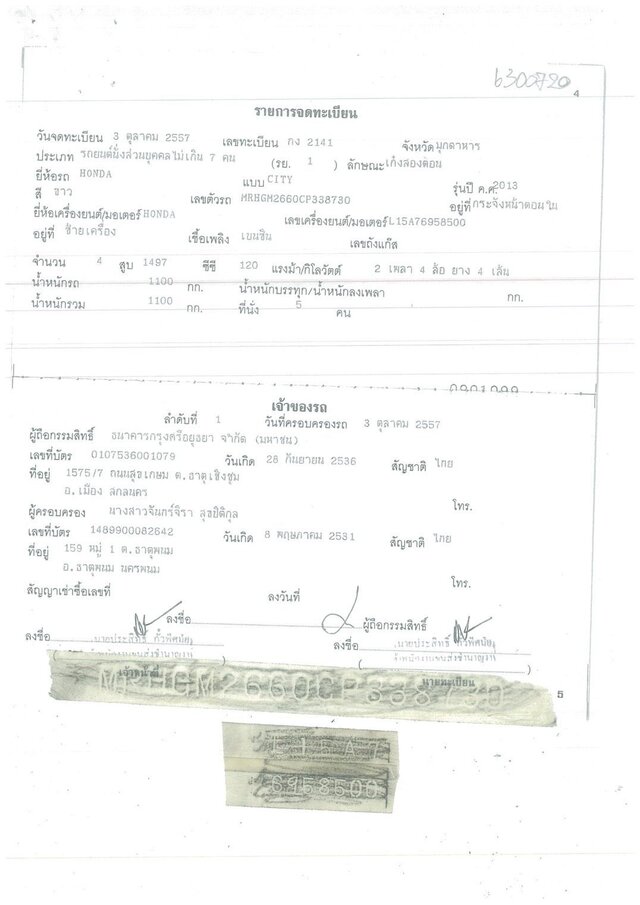 6300720
4
รายการจดทะเบียน
วันจดทะเบียน 3 ตุลาคม 2557 เลขทะเบียน กง 2141 จังหวัด มุกดาหาร
ประเภท รถยนต์นั่งส่วนบุคคลไม่เกิน 7 คน (รย. 1 ) ลักษณะ เก๋งสองตอน
ยี่ห้อรถ HONDA แบบ CITY รุ่นปี ค.ศ. 2013
สี ขาว เลขตัวรถ MRHGM2660CP338730 อยู่ที่ กระจังหน้าตอนใน
ยี่ห้อเครื่องยนต์/มอเตอร์ HONDA เลขเครื่องยนต์/มอเตอร์ L15A76958500
อยู่ที่ ซ้ายเครื่อง เชื้อเพลิง เบนซิน เลขถังแก๊ส
จำนวน 4 สูบ 1497 ซีซี 120 แรงม้า/กิโลวัตต์ 2 เพลา 4 ล้อ ยาง 4 เส้น
น้ำหนักรถ 1100 กก. น้ำหนักบรรทุก/น้ำหนักลงเพลา กก.
น้ำหนักรวม 1100 กก. ที่นั่ง 5 คน
เจ้าของรถ
ลำดับที่ 1 วันที่ครอบครองรถ 3 ตุลาคม 2557
ผู้ถือกรรมสิทธิ์ ธนาคารกรุงศรีอยุธยา จำกัด (มหาชน)
เลขที่บัตร 0107536001079 วันเกิด 28 กันยายน 2536 สัญชาติ ไทย
ที่อยู่ 1575/7 ถนนสุขเกษม ต.ธาตุเชิงชุม
อ.เมือง สกลนคร โทร.
ผู้ครอบครอง นางสาวจันทร์จิรา สุขปิติกุล
เลขที่บัตร 1489900082642 วันเกิด 8 พฤษภาคม 2531 สัญชาติ ไทย
ที่อยู่ 159 หมู่ 1 ต.ธาตุพนม
อ.ธาตุพนม นครพนม โทร.
สัญญาเช่าซื้อเลขที่ ลงวันที่ ผู้ถือกรรมสิทธิ์
ลงชื่อ
ลงชื่อ นายประสิทธิ์ ลงชื่อ นายประสิทธิ์
เจ้าหน้าที่ นายทะเบียน
MRHGM2660CP338730
5
L15A7
6958500